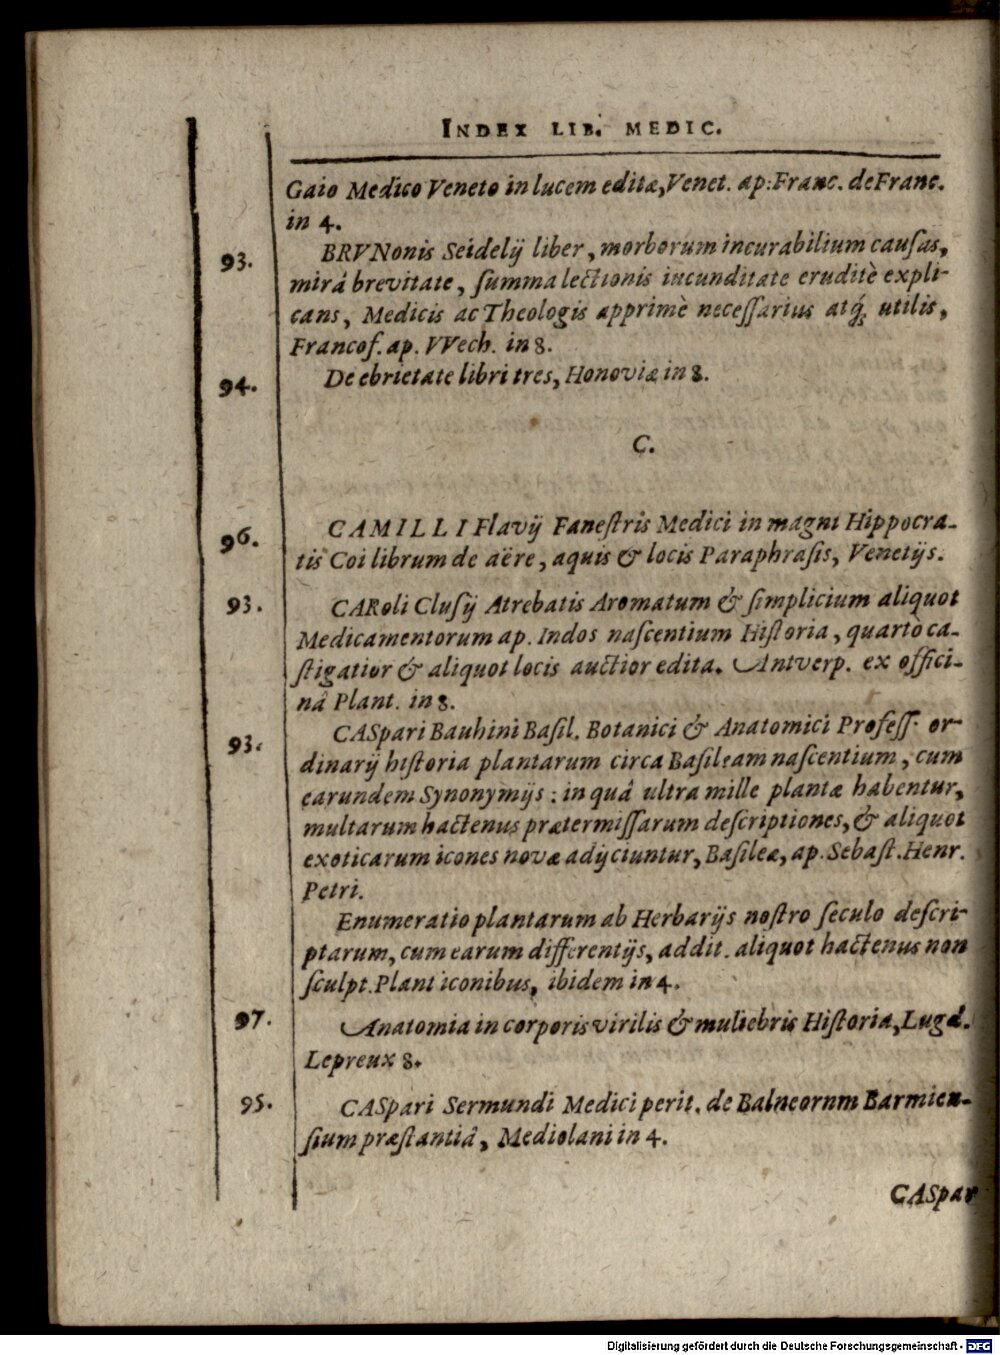 INDEX LIB. MEDIC.
Gaio Medico Veneto in lucem editæ, Venet. ap: Franc. de Franc.
in 4.
93. BRVNonis Seidelij liber, morborum incurabilium cauſas,
mirâ brevitate, ſumma lectionis iucunditate eruditè expli-
cans, Medicis ac Theologis apprimè neceſſarius atq́; utilis,
Francof. ap. VVech. in 8.
94. De ebrietate libri tres, Honoviæ in 8.
C.
96. CAMILLI Flavij Faneſtris Medici in magni Hippocra-
tis Coi librum de aëre, aquis & locis Paraphraſis, Venetijs.
93. CARoli Cluſij Atrebatis Aromatum & ſimplicium aliquot
Medicamentorum ap. Indos naſcentium Hiſtoria, quartò ca-
ſtigatior & aliquot locis auctior edita. Antverp. ex offici-
nâ Plant. in 8.
93. CASpari Bauhini Baſil. Botanici & Anatomici Profeſſ. or-
dinarij hiſtoria plantarum circa Baſileam naſcentium, cum
earundem Synonymijs: in quâ ultra mille plantæ habentur,
multarum hactenus prætermiſſarum deſcriptiones, & aliquot
exoticarum icones novæ adijciuntur, Baſileæ, ap. Sebaſt. Henr.
Petri.
Enumeratio plantarum ab Herbarijs noſtro ſeculo deſcri-
ptarum, cum earum differentijs, addit. aliquot hactenus non
ſculpt. Plant iconibus, ibidem in 4.
97. Anatomia in corporis virilis & muliebris Hiſtoria, Lugd.
Lepreux 8.
95. CASpari Sermundi Medici perit. de Balneornm Barmien-
ſium præſtantiâ, Mediolani in 4.
CASpar
Digitalisierung gefördert durch die Deutsche Forschungsgemeinschaft - DFG